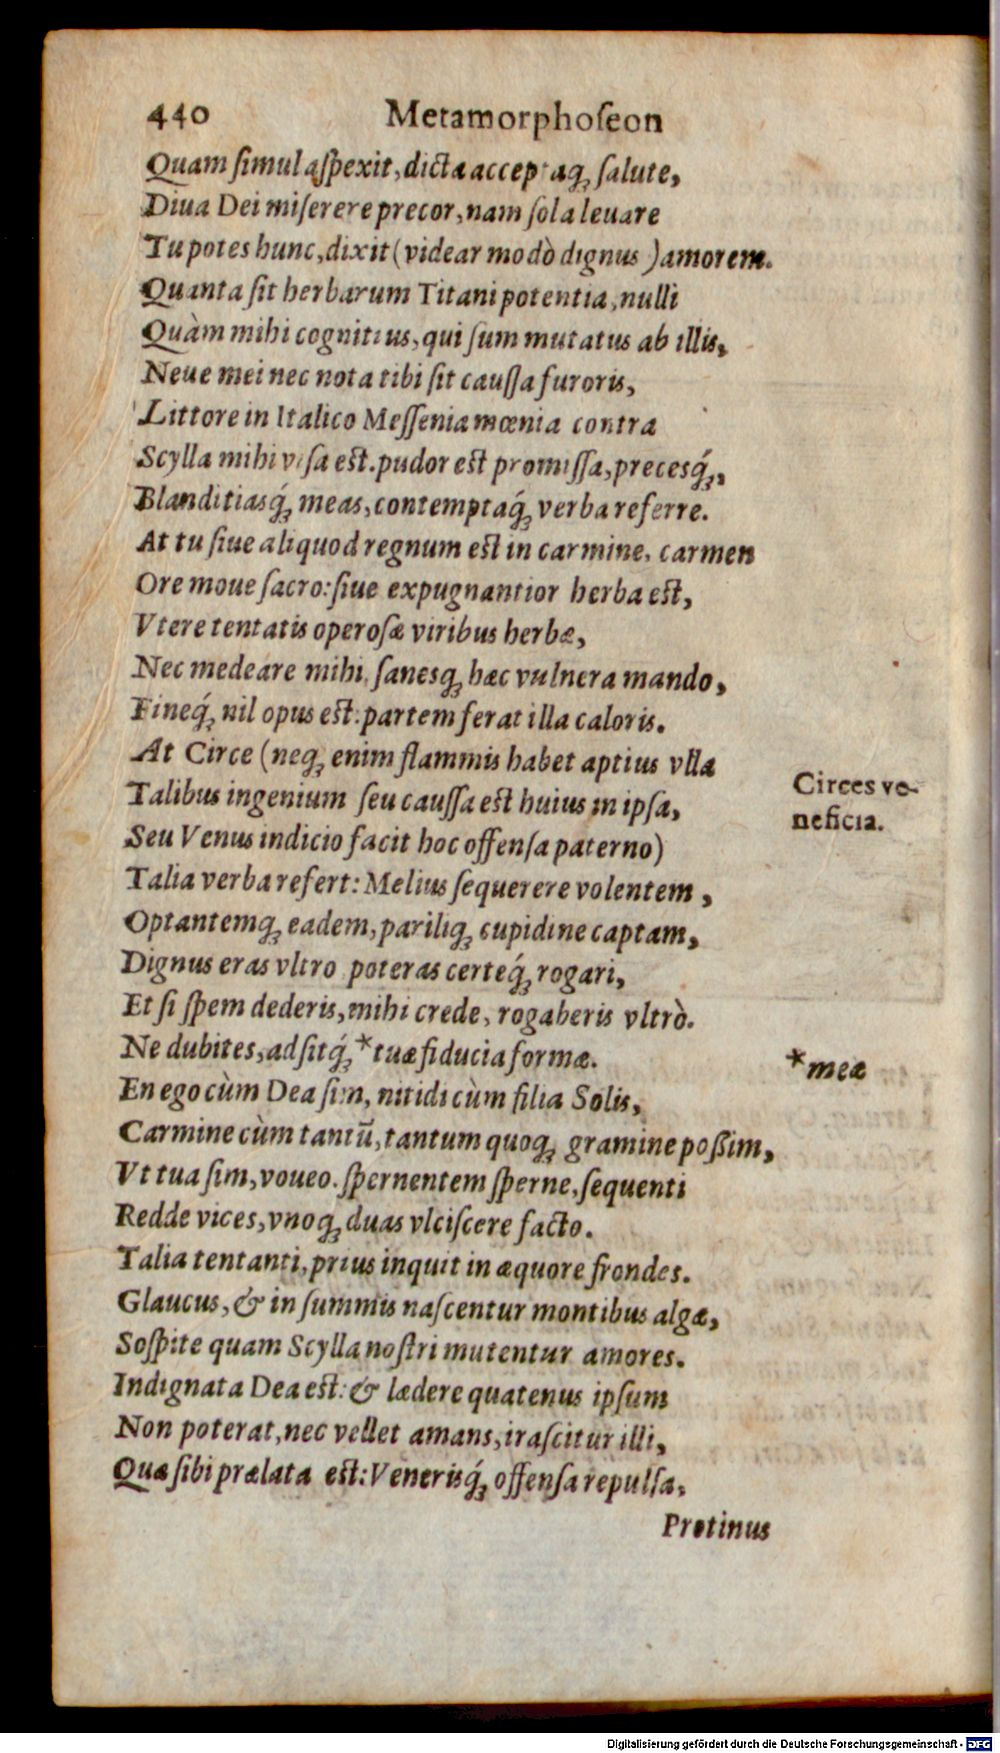 440 Metamorphoſeon
Quam ſimul aſpexit, dicta accep aq́ꝫ ſalute,
Diua Dei miſerere precor, nam ſola leuare
Tu potes hunc, dixit (videar modò dignus) amorem.
Quanta ſit herbarum Titani potentia, nulli
Quàm mihi cognitius, qui ſum mutatus ab illis,
Neue mei nec nota tibi ſit cauſſa furoris,
Littore in Italico Meſſenia mœnia contra
Scylla mihi viſa est. pudor est promiſſa, precesq́ꝫ,
Blanditiasq́ꝫ meas, contemptaq́ꝫ verba referre.
At tu ſiue aliquod regnum est in carmine, carmen
Ore moue ſacro: ſiue expugnantior herba est,
Vtere tentatis operoſæ viribus herbæ,
Nec medeare mihi, ſanesqꝫ hæc vulnera mando,
Fineq́ꝫ nil opus est: partem ferat illa caloris.
At Circe (neqꝫ enim flammis habet aptius vlla
Talibus ingenium ſeu cauſſa est huius in ipſa,
Seu Venus indicio facit hoc offenſa paterno)
Circes ve-
neficia.
Talia verba refert: Melius ſequerere volentem,
Optantemqꝫ eadem, pariliqꝫ cupidine captam,
Dignus eras vltro poteras certeq́ꝫ rogari,
Et ſi ſpem dederis, mihi crede, rogaberis vltrò.
Ne dubites, adſitq́ꝫ *tuæ fiducia formæ.
*meæ
En ego cùm Dea ſim, nitidi cùm filia Solis,
Carmine cùm tantū, tantum quoqꝫ gramine poßim,
Vt tua ſim, voueo. ſpernentem ſperne, ſequenti
Redde vices, vnoqꝫ duas vlciſcere facto.
Talia tentanti, prius inquit in æquore frondes.
Glaucus, & in ſummis naſcentur montibus algæ,
Soſpite quam Scylla noſtri mutentur amores.
Indignata Dea est: & lædere quatenus ipſum
Non poterat, nec vellet amans, iraſcitur illi,
Quæ ſibi prælata est: Venerisq́ꝫ offenſa repulſa,
Protinus
Digitalisierung gefördert durch die Deutsche Forschungsgemeinschaft - DFG